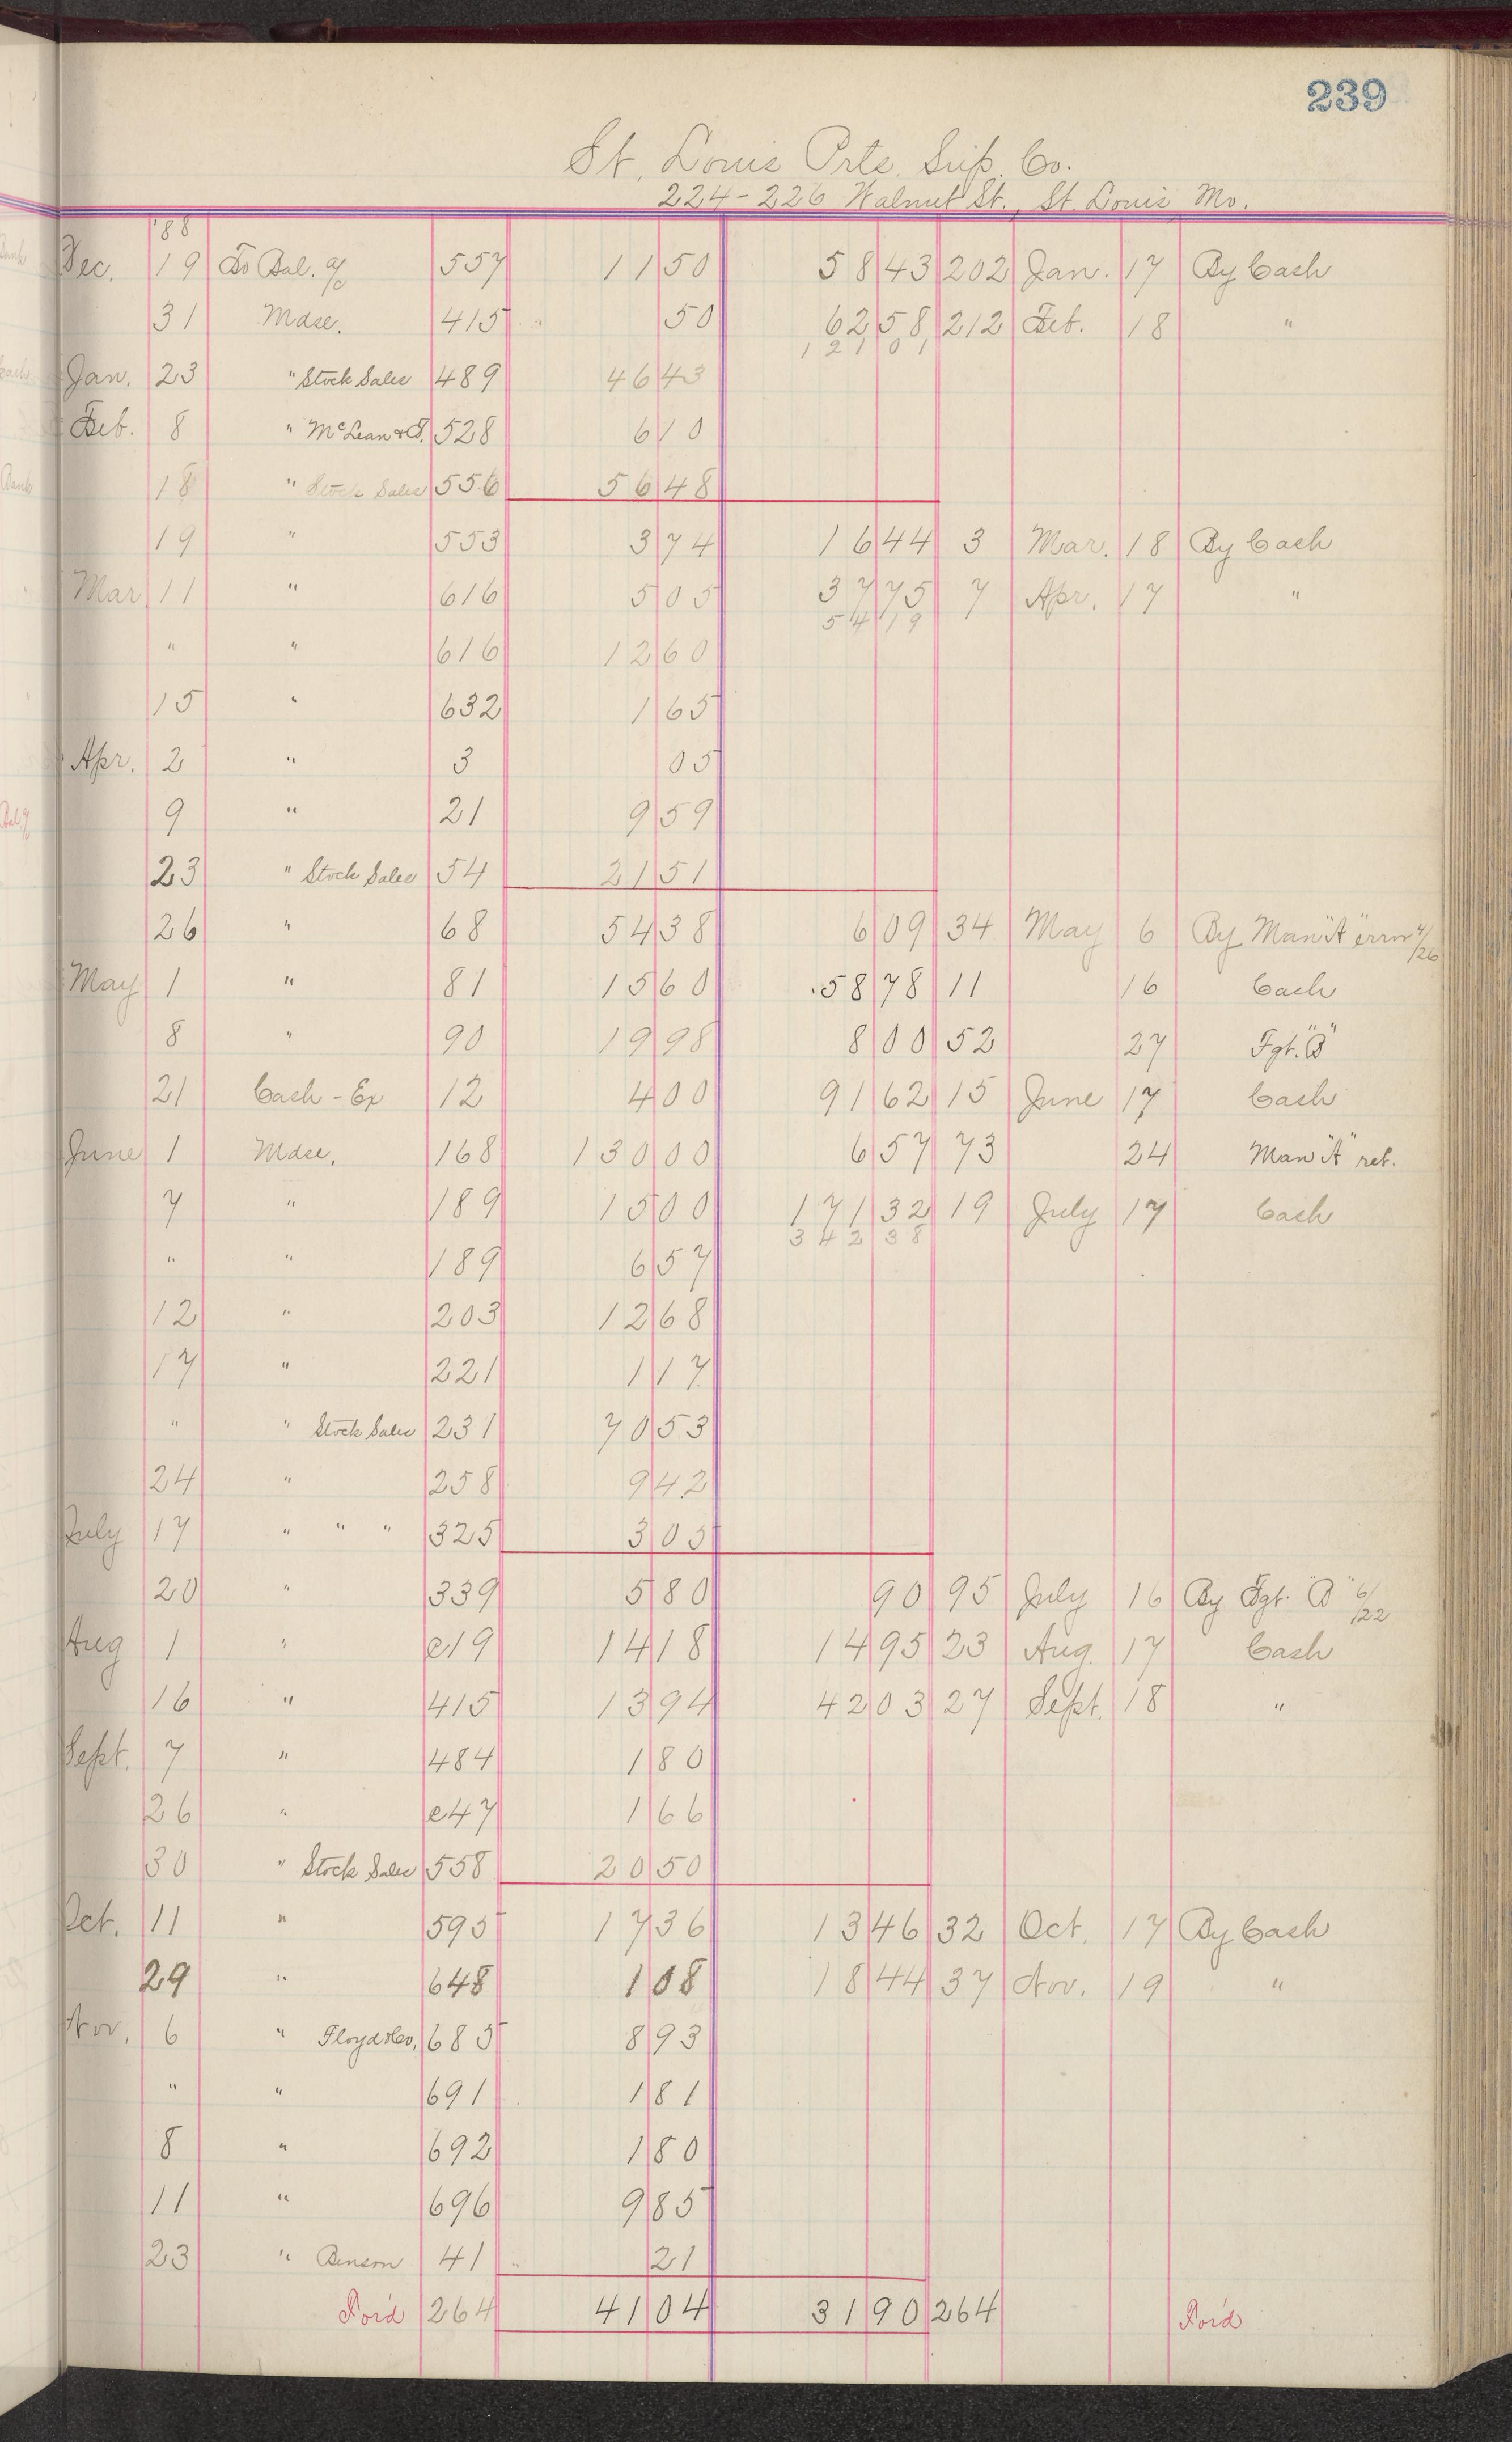 239
St. Louis Prts. Sup. Co.
224-226 Walnut St., St. Louis Mo.
'88
Dec. 19 To Bal. a/c 557 11 50 58 43 202 Jan. 17 By Cash
31 Mdse. 415 50 62 58 212 Feb. 18 "
121 01
Jan. 23 " Stock Sales 489 46 43
Feb. 8 " McLean & S. 528 6 10
18 " Stock Sales 556 56 48
19 " 553 3 74 16 44 3 Mar. 18 By Cash
Mar 11 " 616 5 05 37 75 7 Apr. 17 "
54 19
" " 616 12 60
15 " 632 1 65
Apr. 2 " 3 05
9 " 21 9 59
23 " Stock Sales 54 21 51
26 " 68 54 38 6 09 34 May 6 By Man "A" error 4/26
May 1 " 81 15 60 58 78 11 16 Cash
8 " 90 19 98 8 00 52 27 Fgt. "B"
21 Cash - Ex 12 4 00 91 62 15 June 17 Cash
June 1 Mdse. 168 130 00 6 57 73 24 Man "A" ret.
7 " 189 15 00 171 32 19 July 17 Cash
342 38
" " 189 6 57
12 " 203 12 68
17 " 221 1 17
" " Stock Sales 231 70 53
24 " 258 9 42
July 17 " " " 325 3 05
20 " 339 5 80 90 95 July 16 By Fgt. "B" 6/22
Aug 1 " e19 14 18 14 95 23 Aug. 17 Cash
16 " 415 13 94 42 03 27 Sept. 18 "
Sept. 7 " 484 1 80
26 " e47 1 66
30 " Stock Sales 558 20 50
Oct. 11 " 595 17 36 13 46 32 Oct. 17 By Cash
29 " 648 1 08 18 44 37 Nov. 19 "
Nov. 6 " Floyd & Co. 685 8 93
" " 691 1 81
8 " 692 1 80
11 " 696 9 85
23 " Benson 41 21
For'd 264 41 04 31 90 264 For'd